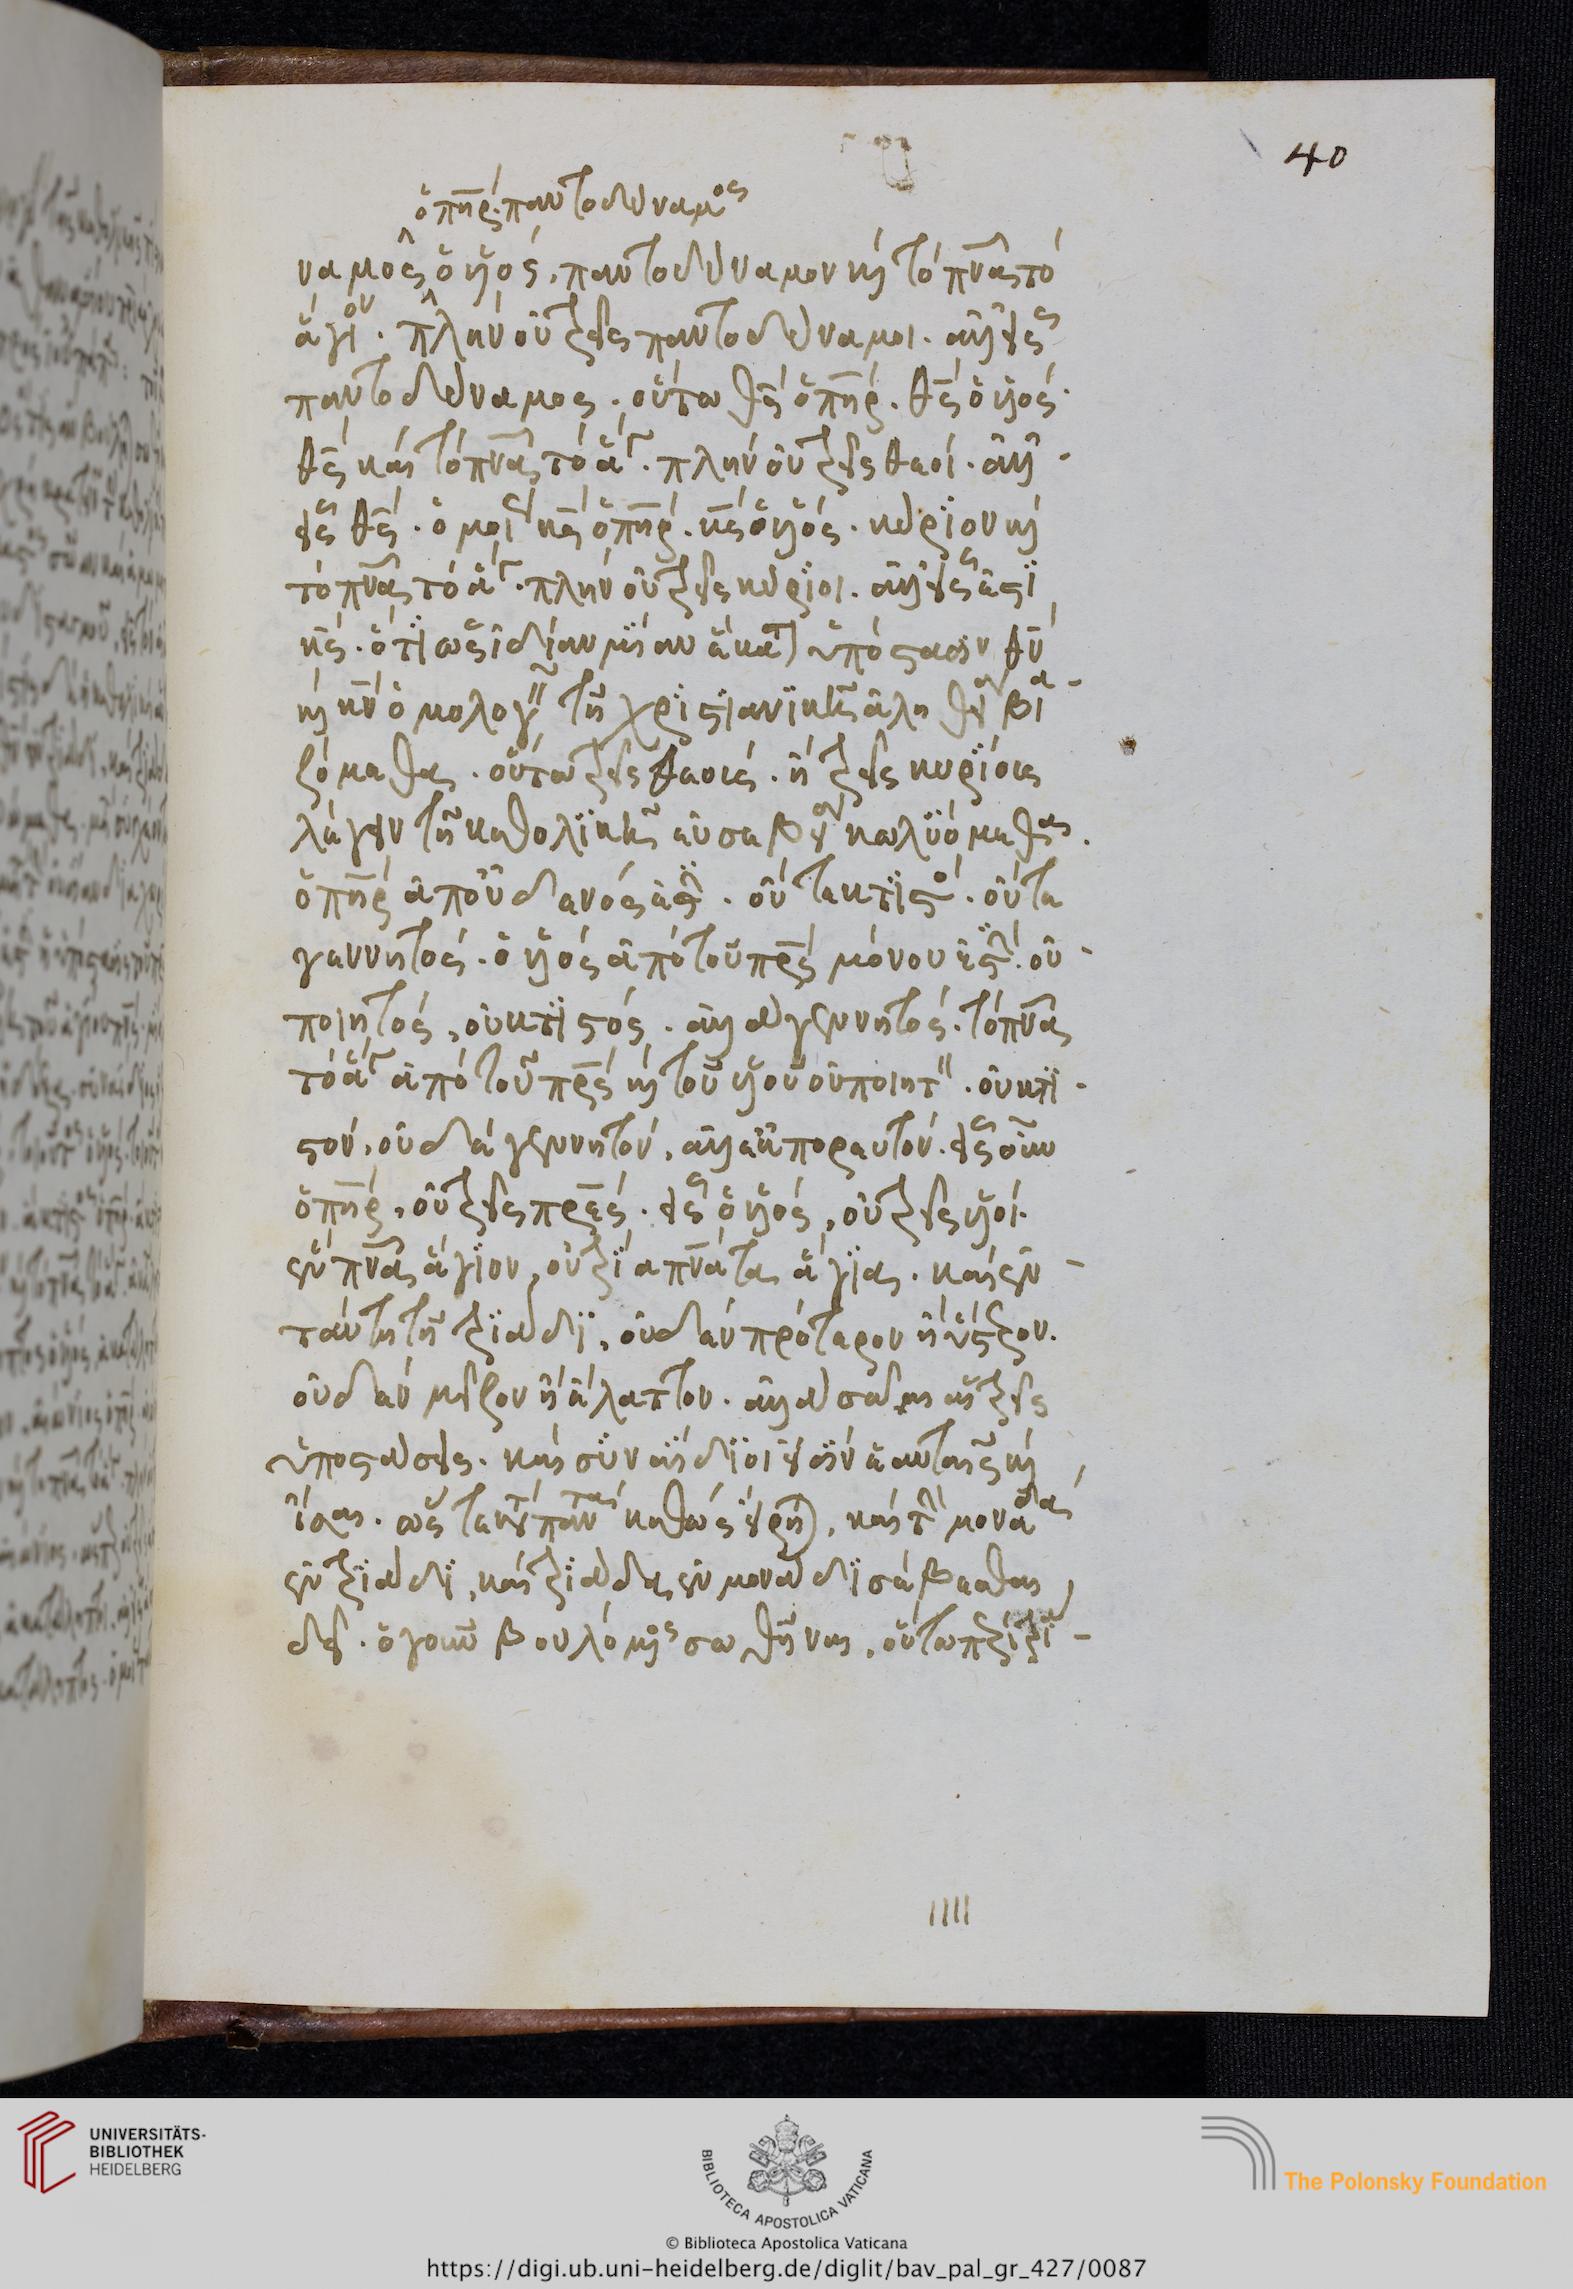 40
ὁ πηρ· παντοδύναμος
ναμος ὁ ὑὸς, παντοδύναμον καὶ τὸ πνα τὸ
ἅγιον. πλὴν οὐ τρεῖς παντοδύναμοι. ἀλλ' εἷς
παντοδύναμος. οὕτω θς ὁ πηρ. θς ὁ ὑὸς.
θς καὶ τὸ πνα τὸ ἅγ. πλὴν οὐ τρεῖς θεοὶ. ἀλλ'
εἷς θς. ὁμοί κς ὁ πηρ. κς ὁ ὑὸς. κύριον καὶ
τὸ πνα τὸ ἅγ. πλὴν οὐ τρεῖς κύριοι. ἀλλ' εἷς ἐστὶ
κς. ὅτι ὡς ἰδίαν μίαν ἑκάτ ὑπόστασιν θν
καὶ κν ὁμολογεῖν τῇ χριστιανικῇ ἀληθεία βι
ζόμεθα. οὕτω τρεῖς θεοὺς. ἢ τρεῖς κυρίους
λέγειν τῇ καθολικῇ εὐσεβεία κωλυόμεθα.
ὁ πηρ ἀπ' οὐδενός ἐστι. οὔτε κτιστὸ. οὔτε
γεννητὸς. ὁ ὑὸς ἀπὸ τοῦ πρς μόνου ἐστὶ. οὐ
ποιητὸς, οὐ κτιστὸς. ἀλλὰ γεννητὸς. τὸ πνα
τὸ ἅγ ἀπὸ τοῦ πρς καὶ τοῦ ὑοῦ οὐ ποιητ. οὐ κτι
στὸν, οὐδὲ γεννητὸν, ἀλλ' ἐκπορευτὸν. εἷς οὖν
ὁ πηρ, οὐ τρεῖς πρες. εἷς ὁ ὑὸς, οὐ τρεῖς ὑοὶ.
ἓν πνα ἅγιον, οὐ τρία πνατα ἅγια. καὶ ἐν
ταύτη τῇ τριάδι, οὐδὲν πρότερον ἢ ὕστερον.
οὐδὲν μεῖζον ἢ ἔλαττον. ἀλλὰ σῶαι αἱ τρεῖς
ὑποστάσεις. καὶ συναΐδιοι εἰσὶν ἑαυταῖς καὶ
ἶσαι. ὥστε παντ καθὼς εἴρητ, καὶ τὴν μονάδα
ἐν τριάδι, καὶ τριάδα ἐν μονάδι σέβεσθαι
δεῖ. ὁ γοῦν βουλόμενος σωθῆναι, οὕτω πε
UNIVERSITÄTS-
BIBLIOTHEK
HEIDELBERG
BIBLIOTECA APOSTOLICA VATICANA
The Polonsky Foundation
© Biblioteca Apostolica Vaticana
https://digi.ub.uni-heidelberg.de/diglit/bav_pal_gr_427/0087